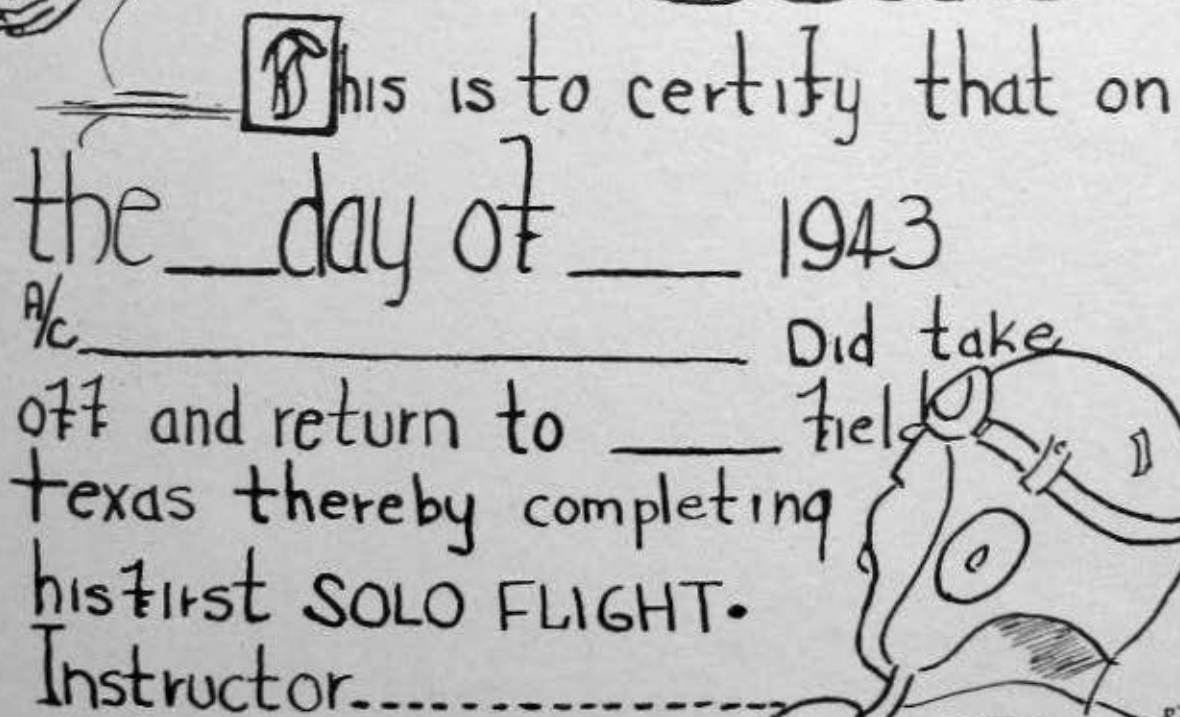 This is to certify that on
the __ day of ___ 1943
A/c ____________ Did take
off and return to ___ field
texas thereby completing
his first SOLO FLIGHT.
Instructor................